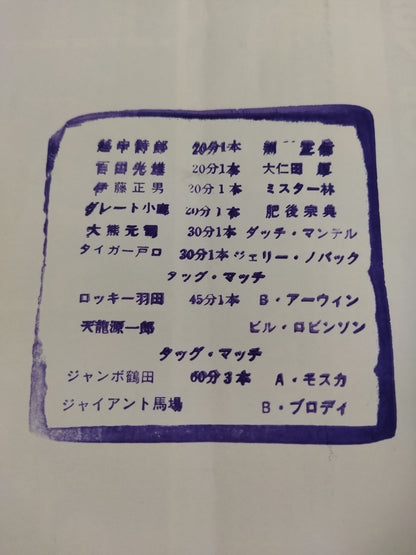 越中詩郎 20分1本
百田光雄 20分1本 大仁田厚
伊藤正男 20分1本 ミスター林
グレート小鹿 20分1本 肥後宗典
大熊元司 30分1本 ダッチ・マンテル
タイガー戸口 30分1本 ジェリー・ノバック
タッグ・マッチ
ロッキー羽田 45分1本 B・アーウィン
天龍源一郎 ビル・ロビンソン
タッグ・マッチ
ジャンボ鶴田 60分3本 A・モスカ
ジャイアント馬場 B・ブロディ